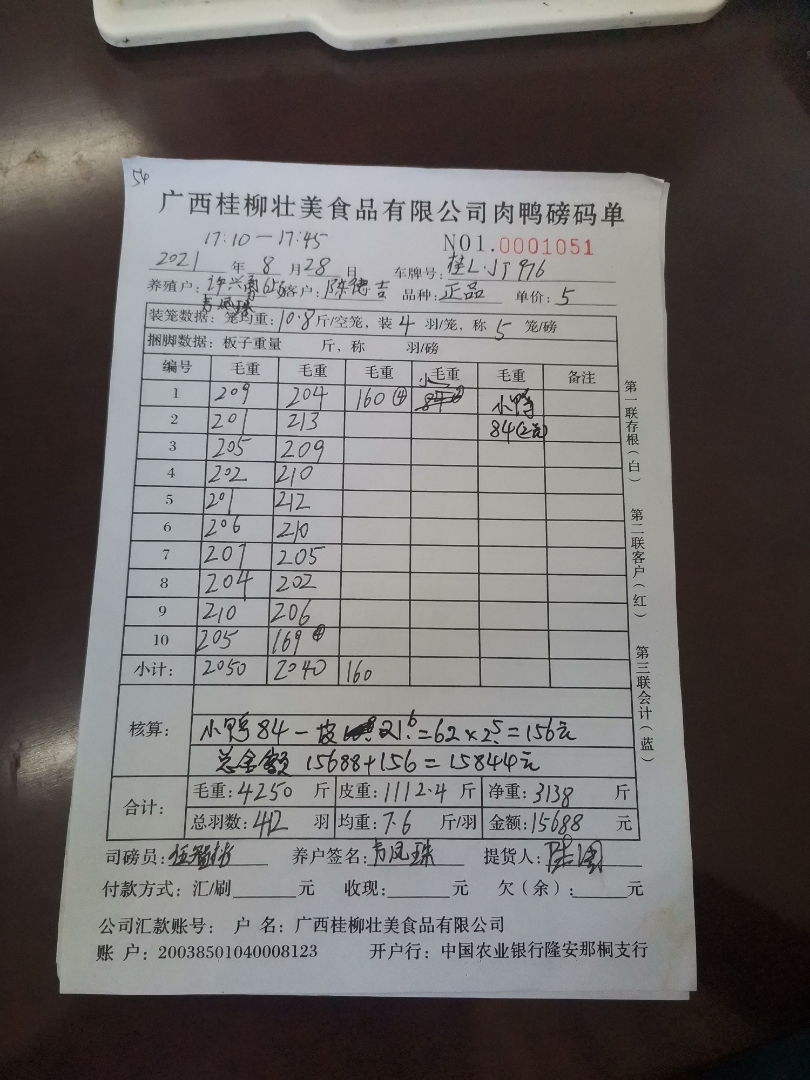 54
广西桂柳壮美食品有限公司肉鸭磅码单
17:10—17:45 NO1.0001051
2021 年 8 月 28 日 车牌号: 桂L·JJ976
养殖户: 许兴雷 客户: 陈德吉 品种: 正品 单价: 5
方凤珠
装笼数据: 笼均重: 10.8 斤/空笼, 装 4 羽/笼, 称 5 笼/磅
捆脚数据: 板子重量 斤, 称 羽/磅
编号 毛重 毛重 毛重 毛重 毛重 备注
1 209 204 160④ 小鸭
2 201 213 84(2元)
3 205 209
4 202 210
5 201 212
6 206 210
7 207 205
8 204 202
9 210 206
10 205 169④
小计: 2050 2040 160
核算: 小鸭84-皮 21.6=62×2.5=156元
总金额 15688+156=15844元
合计: 毛重: 4250 斤 皮重: 1112.4 斤 净重: 3138 斤
总羽数: 412 羽 均重: 7.6 斤/羽 金额: 15688 元
司磅员: 养户签名: 方凤珠 提货人:
付款方式: 汇/刷 元 收现: 元 欠(余): 元
公司汇款账号: 户 名: 广西桂柳壮美食品有限公司
账 户: 20038501040008123 开户行: 中国农业银行隆安那桐支行
第一联存根(白)
第二联客户(红)
第三联会计(蓝)